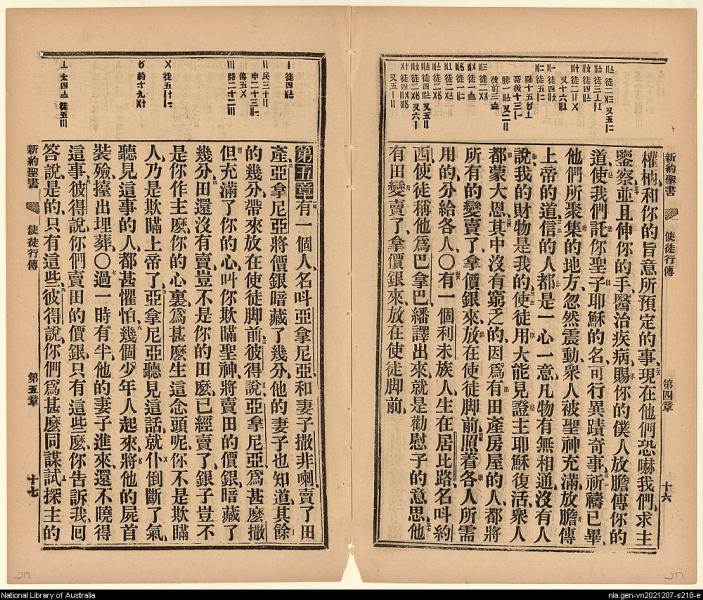 新約聖書
使徒行傳
第四章
十六
權柄和你的旨意所預定的事、現在他們恐嚇我們、求主
鑒察、並且伸你的手醫治疾病、賜你的僕人放膽傳你的
道、使我們託你聖子耶穌的名、可行異蹟奇事、祈禱已畢
他們所聚集的地方忽然震動、衆人被聖神充滿、放膽傳
上帝的道、信的人都是一心一意、凡物有無相通、沒有人
說我的財物是我的、使徒用大能見證主耶穌復活、衆人
都蒙大恩、其中沒有窮乏的、因爲有田產房屋的人、都將
所有的變賣了、拿價銀來、放在使徒脚前、照着各人所需
用的、分給各人〇有一個利未族人、生在居比路、名叫約
西、使徒稱他爲巴拿巴、繙譯出來、就是勸慰子的意思、他
有田變賣了、拿價銀來放在使徒脚前、
第五章有一個人名叫亞拿尼亞、和妻子撒非喇、賣了田
產、亞拿尼亞將價銀暗藏了幾分、他的妻子也知道、其餘
的幾分、帶來放在使徒脚前、彼得說、亞拿尼亞、爲甚麽撒
但充滿了你的心、叫你欺瞞聖神、將賣田的價銀暗藏了
幾分、田還沒有賣、豈不是你的田麽、已經賣了、銀子豈不
是你作主麽、你的心裏爲甚麽生這念頭呢、你不是欺瞞
人、乃是欺瞞上帝了、亞拿尼亞聽見這話、就仆倒斷了氣、
聽見這事的人都甚懼怕、幾個少年人起來、將他的屍首
裝殮、擡出埋葬〇過一時有半、他的妻子進來、還不曉得
這事、彼得說、你們賣田的價銀、只有這些麽、你告訴我、囘
答說、是的、只有這些、彼得說、你們爲甚麽同謀試探主的
新約聖書
使徒行傳
第五章
十七
National Library of Australia
nla.gen-vn2021207-s218-e